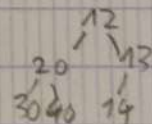 12
20 13
30 40 14